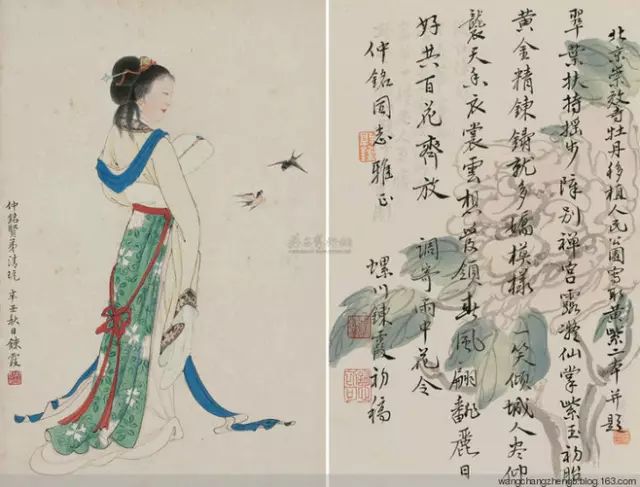 仲銘賢弟清玩
辛壬秋日鍊霞
北京崇效寺牡丹移植人民公園寫取黃紫二本并題
翠葉扶持搖步障別禪宮露凝仙掌紫玉初胎
黃金精鍊鑄就多嬌模樣一笑傾城人盡仰
襲天香衣裳雲想從領春風翩翻麗日
好共百花齊放 調寄雨中花令
仲銘同志雅正
螺川鍊霞初稿
wangchangzheng6.blog.163.com